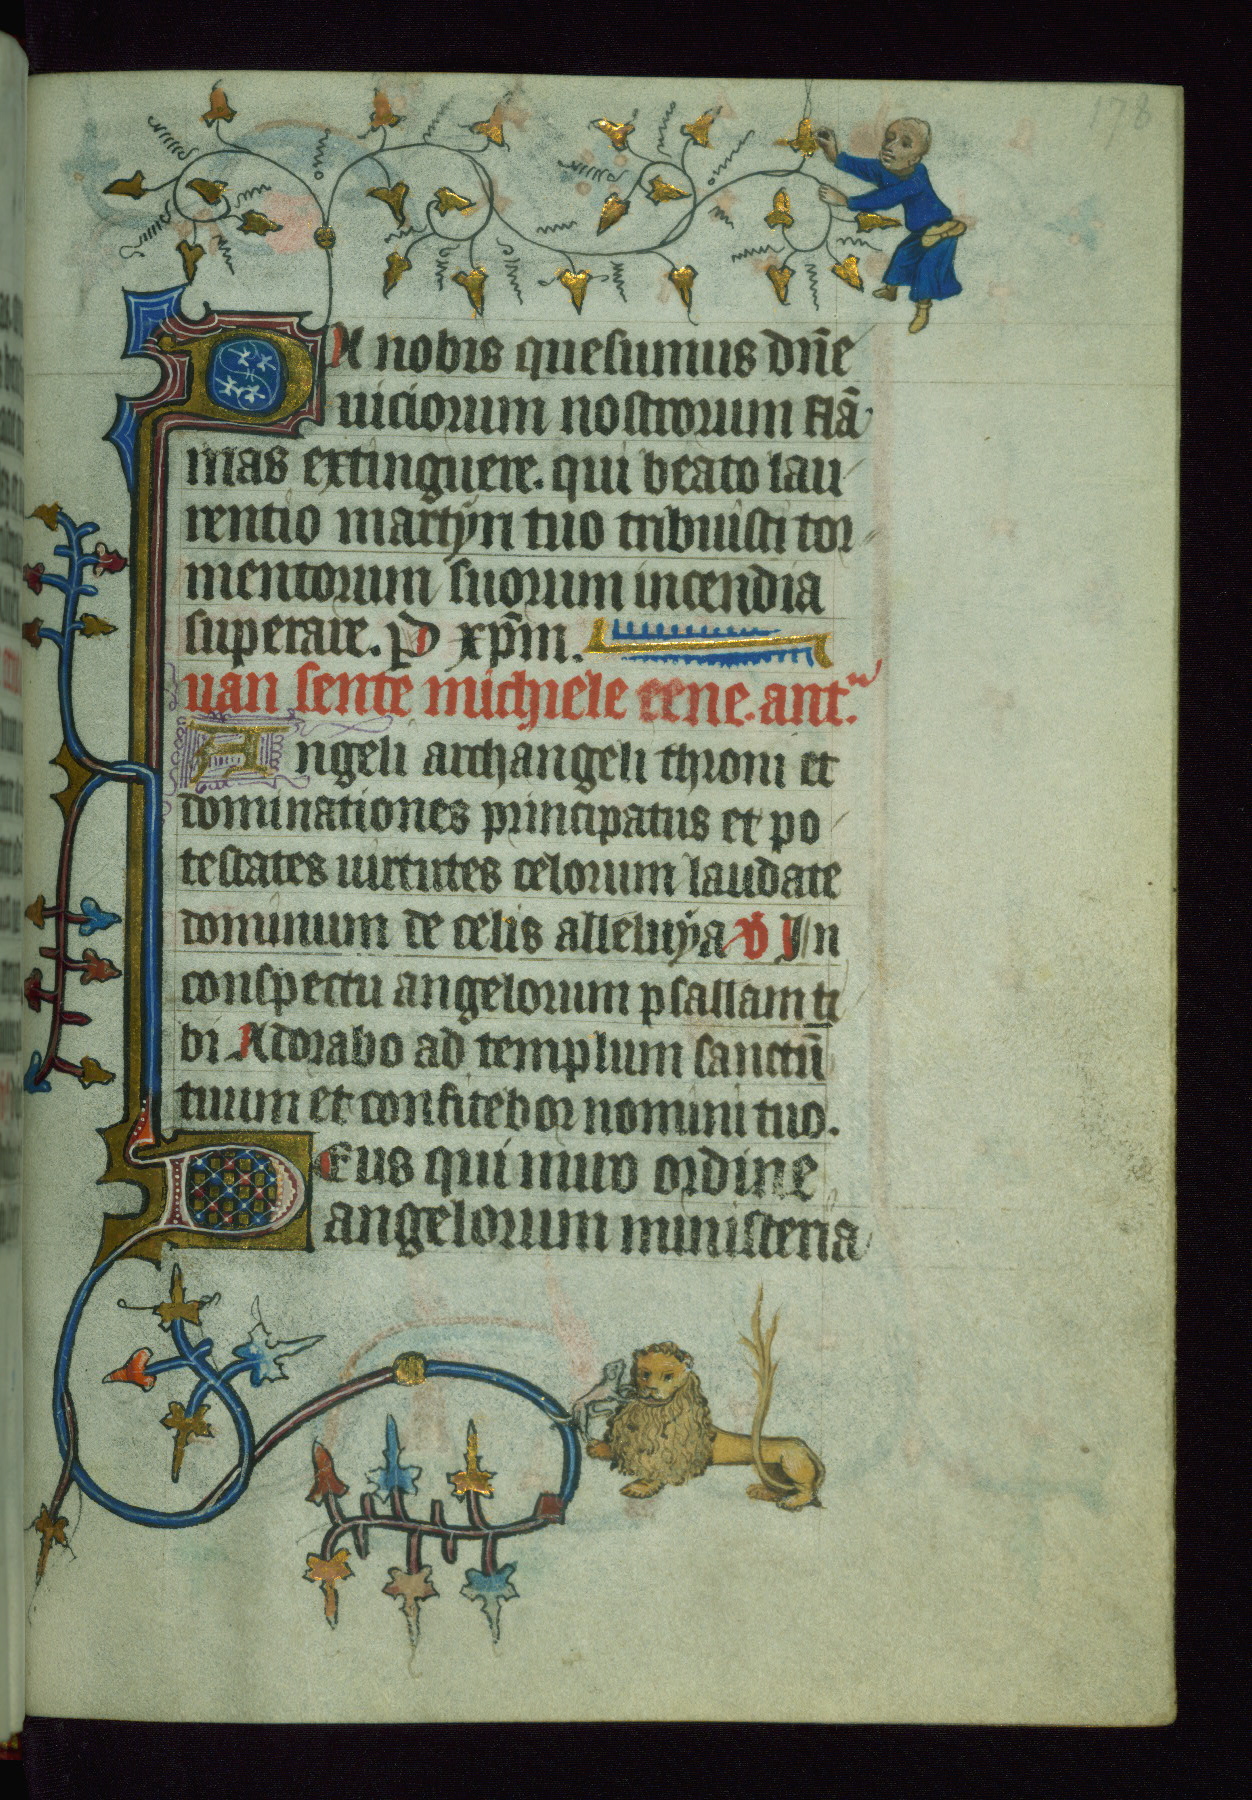 178
DA nobis quesumus dn̄e
uiciorum nostrorum flā
mas extinguere. qui beato lau
rentio martyri tuo tribuisti tor
mentorum suorum incendia
superare. P xp̄m.
uan sente michiele eene. ant.ͫ
Angeli archangeli throni et
dominationes principatus et po
testates uirtutes celorum laudate
dominum de celis alleluya V In
conspectu angelorum psallam ti
bi Adorabo ad templum sanctū
tuum et confitebor nomini tuo.
DEus qui miro ordine
angelorum ministeria